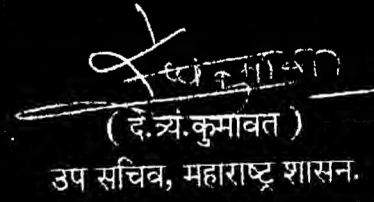 ( दे.त्र्यं.कुमावत )
उप सचिव, महाराष्ट्र शासन.